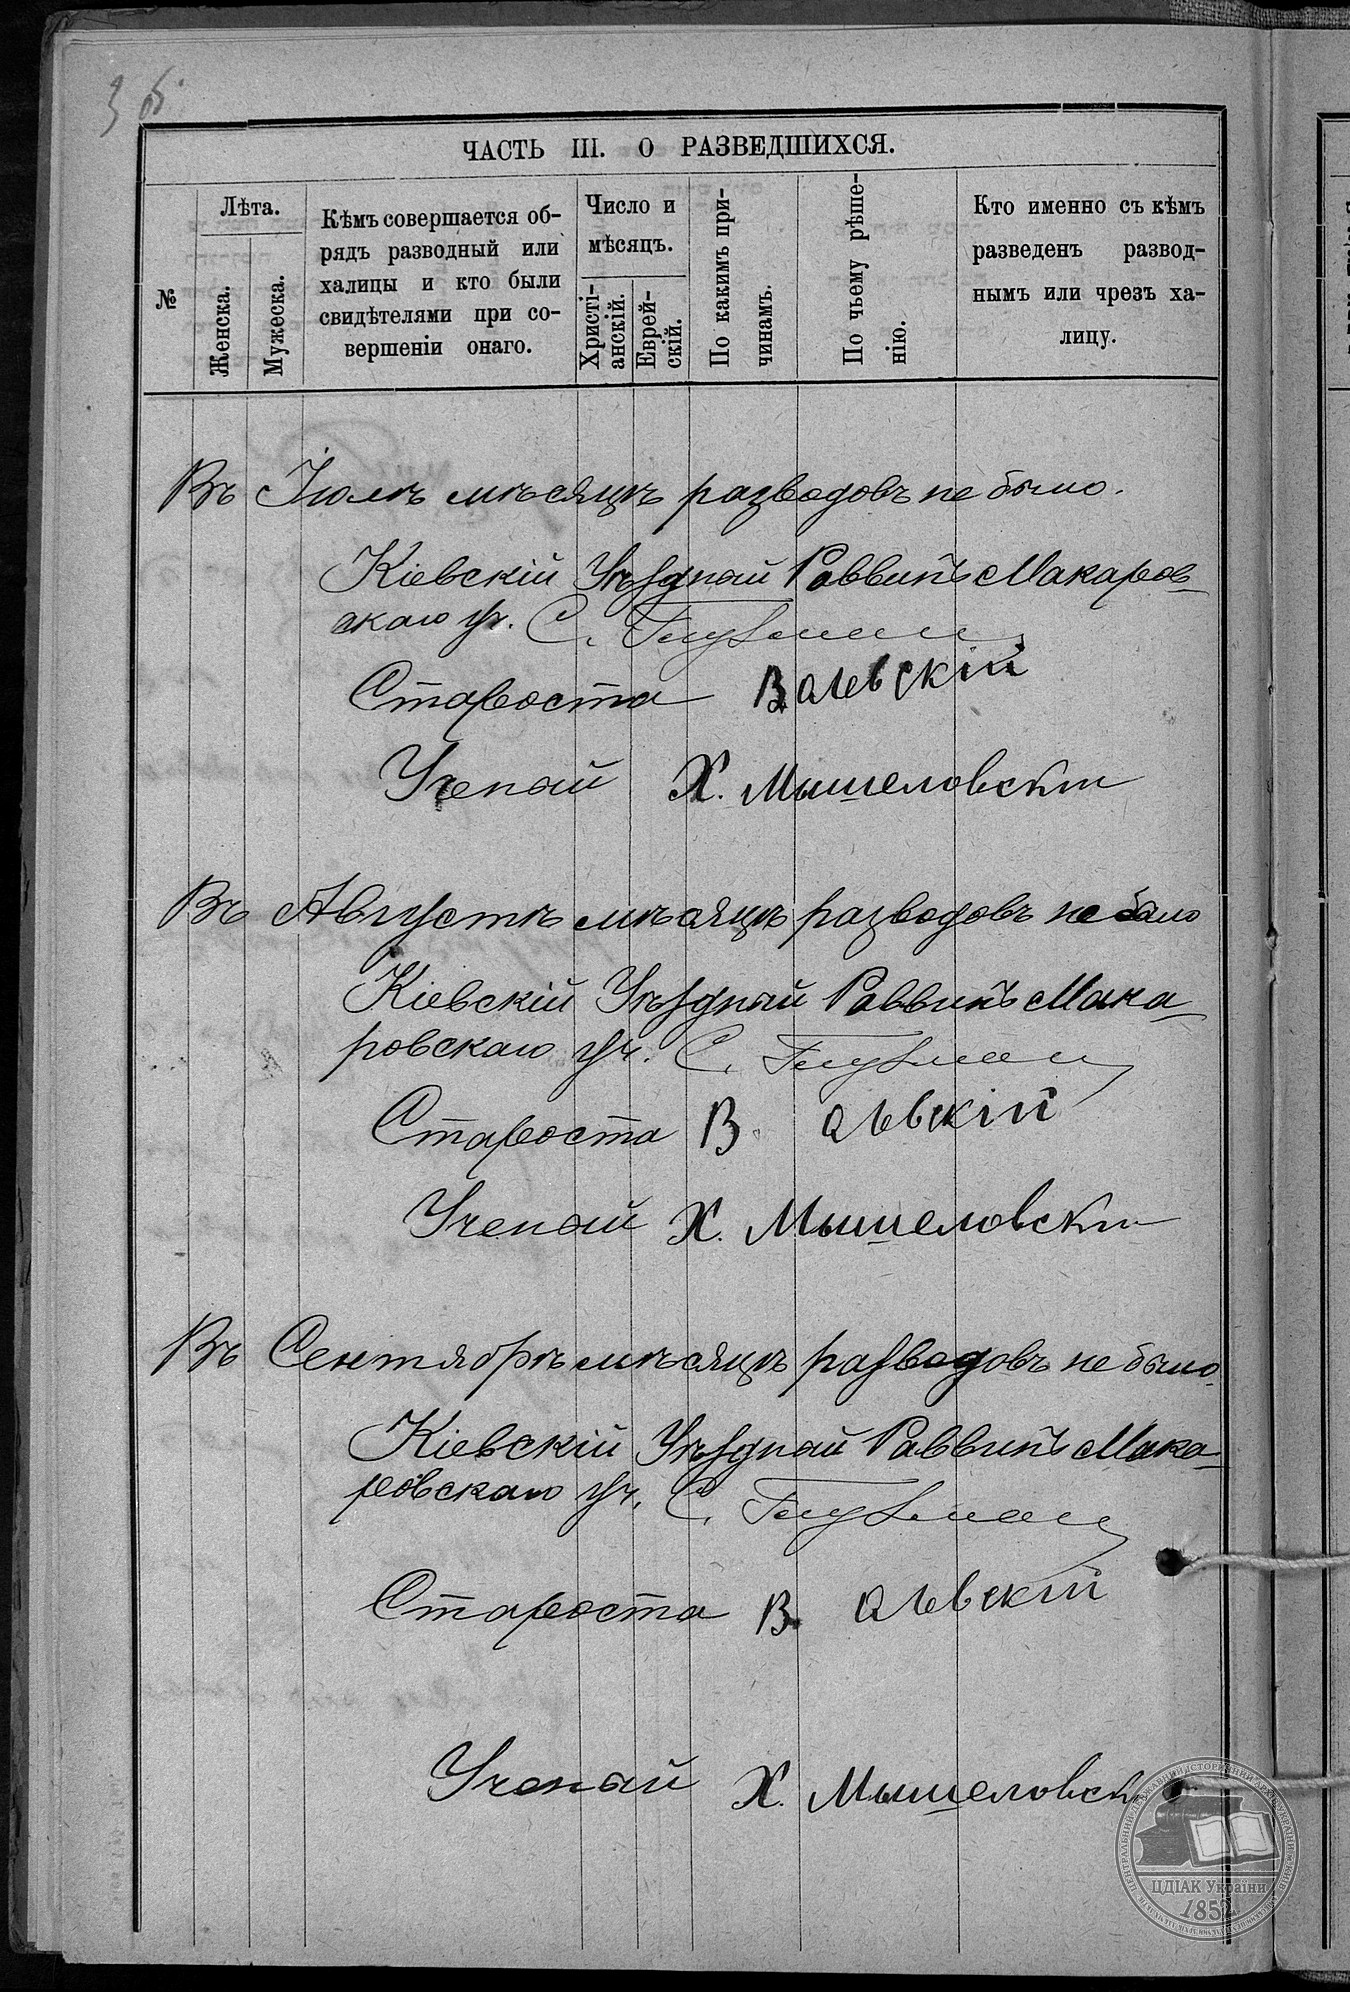 ЧАСТЬ III. О РАЗВЕДШИХСЯ.
№
Лѣта.
Женска.
Мужеска.
Кѣмъ совершается об-
рядъ разводный или
халицы и кто были
свидѣтелями при со-
вершеніи онаго.
Число и
мѣсяцъ.
Христі-
анскій.
Еврей-
скій.
По какимъ при-
чинамъ.
По чьему рѣше-
нію.
Кто именно съ кѣмъ
разведенъ развод-
нымъ или чрезъ ха-
лицу.
Въ Іюлѣ мѣсяцѣ разводовъ не было.
Кіевскій Уѣздный Раввинъ Макаров-
скаго уч. С.
Староста Валевскій
Ученый Х. Мышеловскій
Въ Августѣ мѣсяцѣ разводовъ не было
Кіевскій Уѣздный Раввинъ Мака-
ровскаго уч. С.
Староста В алевскій
Ученый Х. Мышеловскій
Въ Сентябрѣ мѣсяцѣ разводовъ не было.
Кіевскій Уѣздный Раввинъ Мака-
ровскаго уч. С.
Староста В алевскій
Ученый Х. Мышеловскій
ЦЕНТРАЛЬНИЙ ДЕРЖАВНИЙ ІСТОРИЧНИЙ АРХІВ УКРАЇНИ
ЦДІАК України
1852